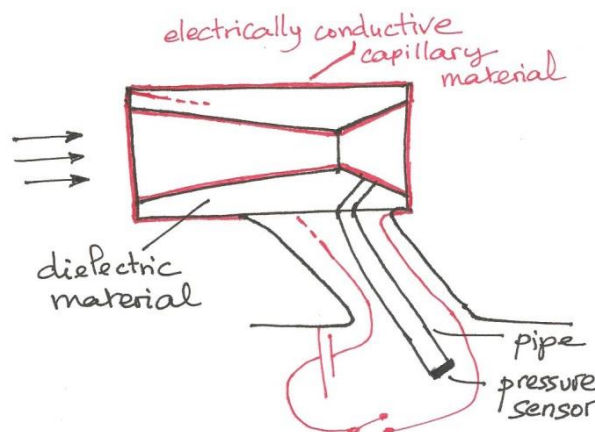 electrically conductive
capillary
material
dielectric
material
pipe
pressure
sensor